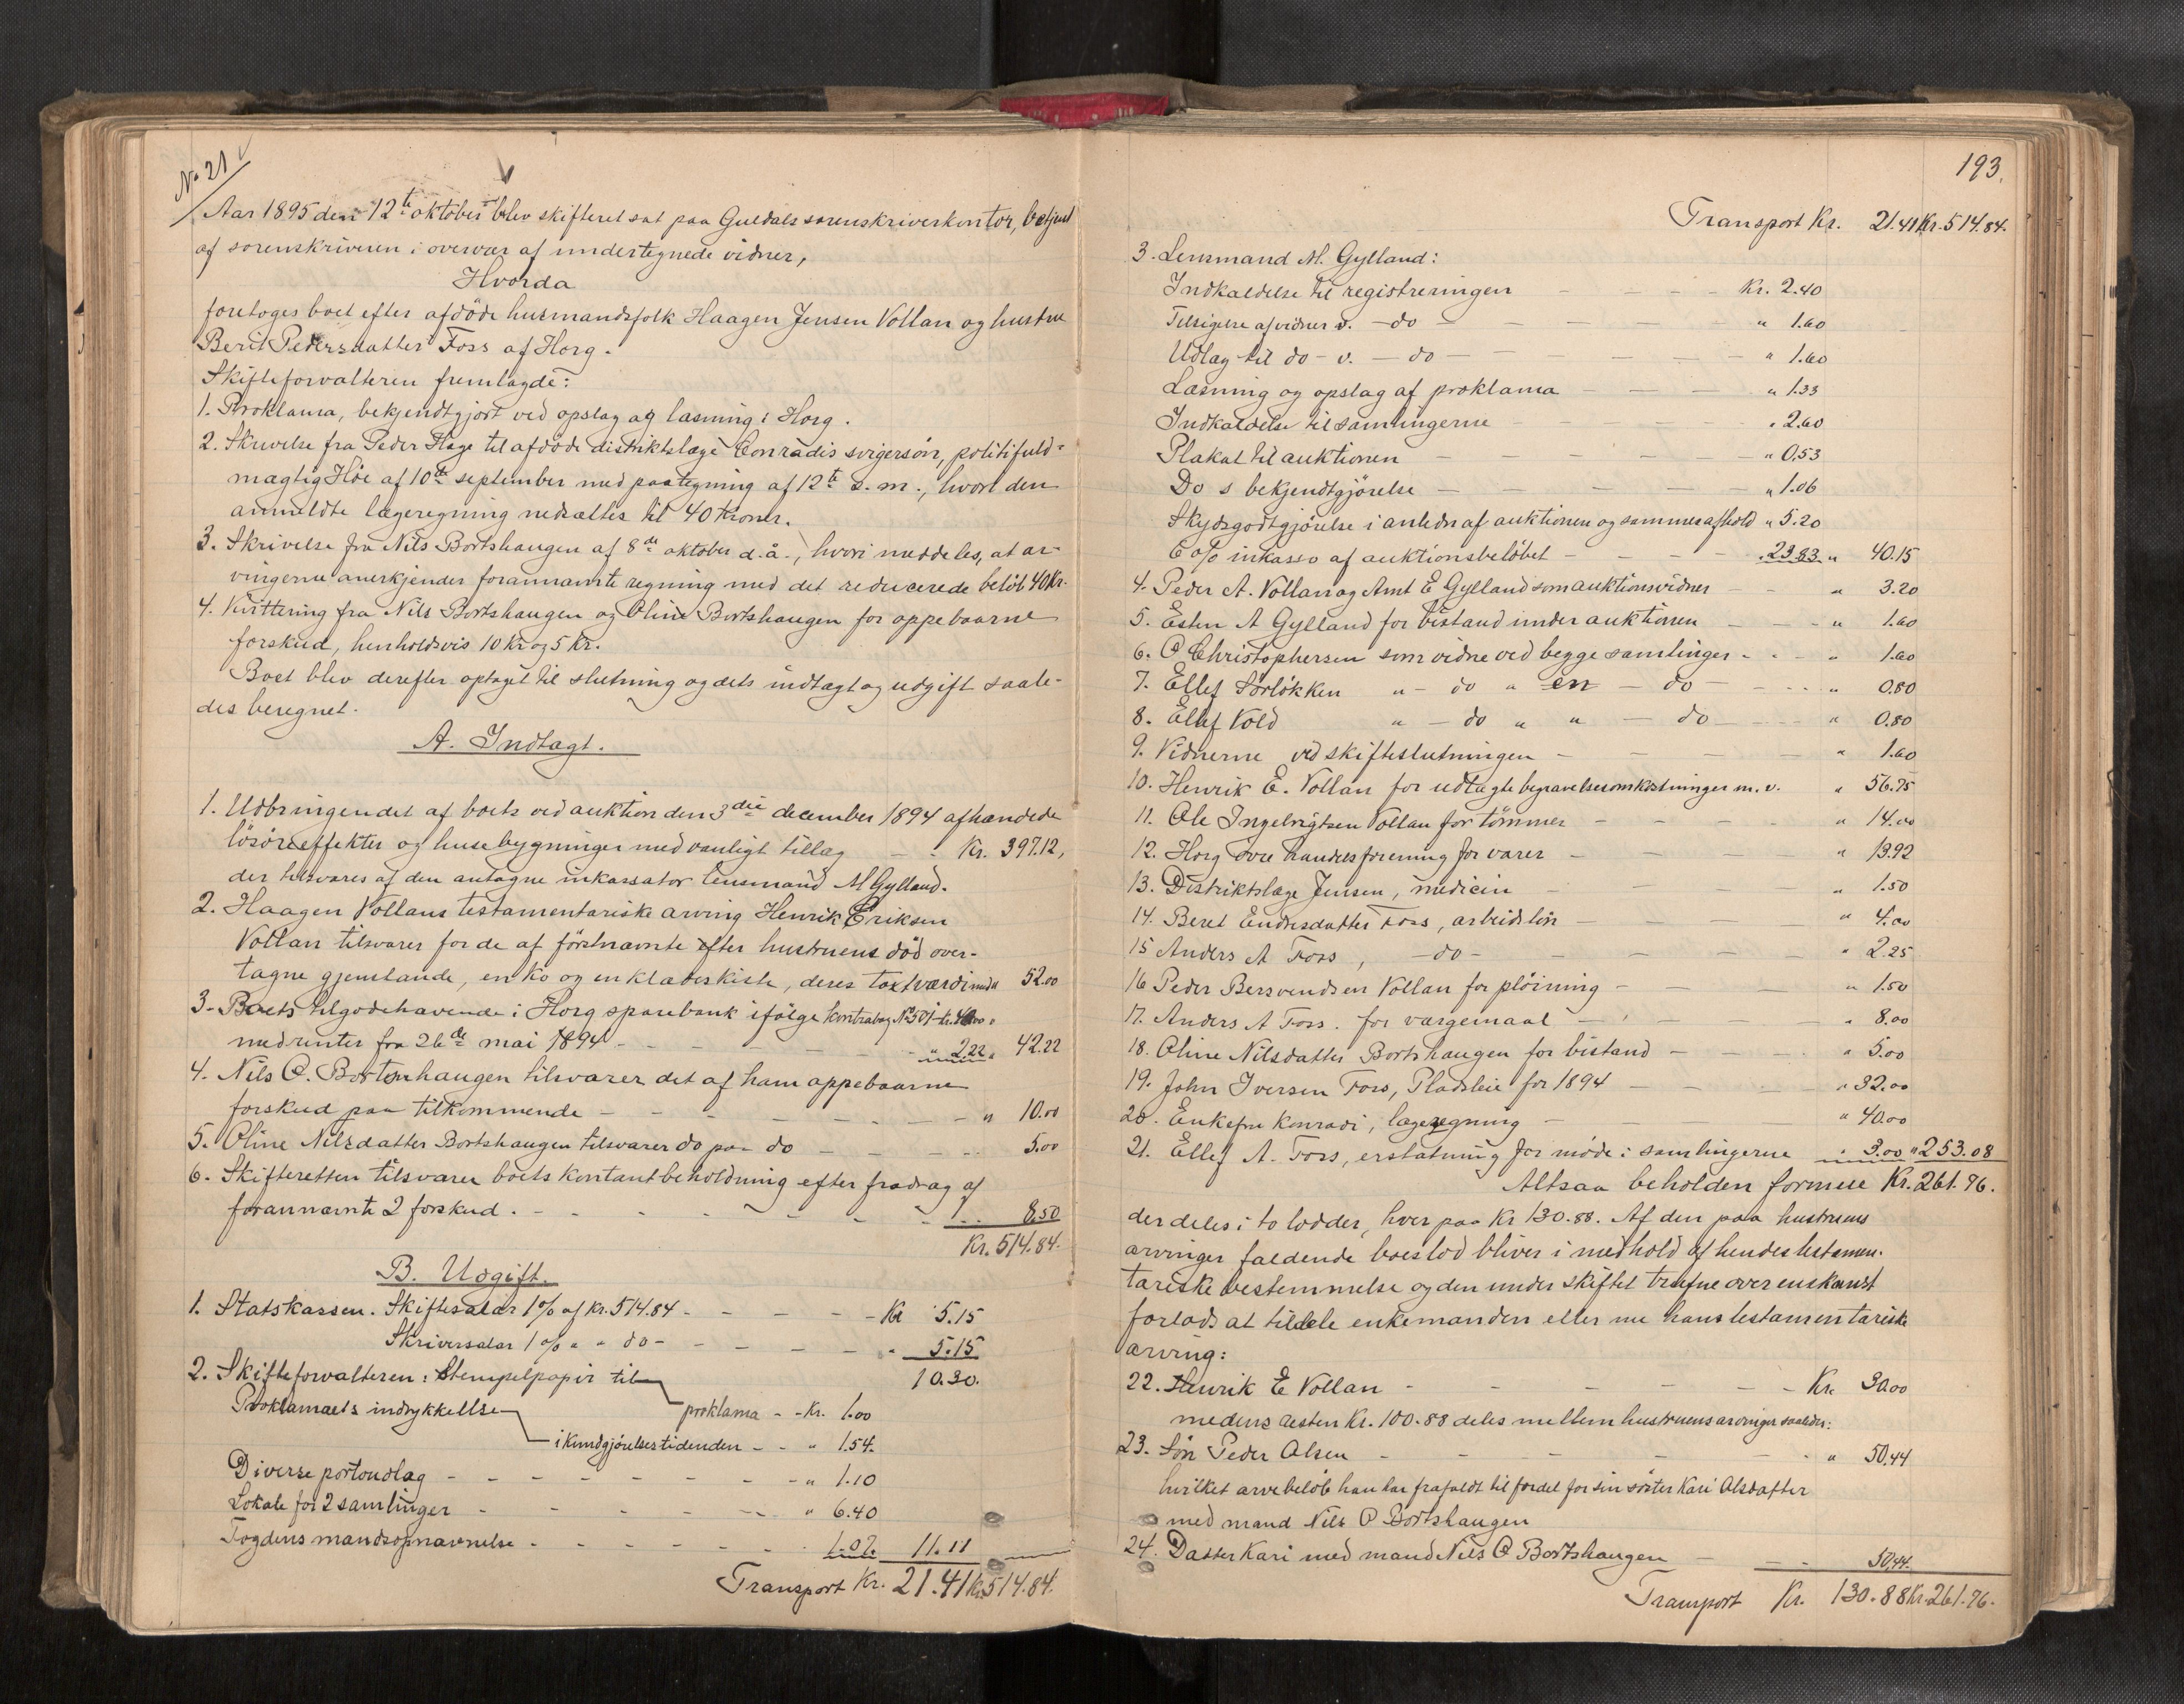 No 21
Aar 1895 den 12te oktober blev skifteret sat paa Guldals sorenskriverkontor, betjent
af sorenskriveren i overvær af undertegnede vidner,
Hvorda
foretoges boet efter afdöde husmandsfolk Haagen Jensen Vollan og hustru
Berit Pedersdatter Foss af Horg.
Skifteforvalteren fremlagde:
1. Proklama, bekjendtgjort ved opslag og læsning i Horg.
2. Skrivelse fra Peder Hage til afdöde distriktslæge Conradis svigersön, politifuld-
mægtig Höe af 10de september med paategning af 12te s. m., hvori den
anmeldte lægeregning nedsættes til 40 kroner.
3. Skrivelse fra Nils Bortshaugen af 8de oktober d. å., hvori meddeles, at ar-
vingerne anerkjender forannævnte regning med det reducerede belöb 40 Kr.
4. Kvittering fra Nils Bortshaugen og Oline Bortshaugen for oppebaarne
forskud, henholdsvis 10 Kr og 5 Kr.
Boet blev derefter optaget til slutning og dets indtægt og udgift saale-
des beregnet.
A. Indtægt.
1. Udbringendet af boets ved auktion den 3die december 1894 afhændede
lösöreeffekter og husebygninger med vanligt tillæg - - Kr. 397.12,
der tilsvares af den antagne inkassator lensmand M Gylland.
2. Haagen Vollans testamentariske arving Henrik Eriksen
Vollan tilsvarer for de af förstnævnte efter hustruens död over-
tagne gjenstande, en ko og en klædeskiste, deres taxtværdi med " 52.00
3. Boets tilgodehavende i Horg sparebank ifölge kontrabog No 501 - kr. 40.00
med renter fra 26de mai 1894 - - - " 2.22 " 42.22
4. Nils O. Bortshaugen tilsvarer det af ham oppebaarne
forskud paa tilkommende - - - " 10.00
5. Oline Nilsdatter Bortshaugen tilsvarer do paa do - - - 5.00
6. Skifteretten tilsvarer boets kontantbeholdning efter fradrag af
forannævnte 2 forskud. - - - 8.50
Kr. 514.84.
B. Udgift.
1. Statskassen. Skiftesalær 1% af kr. 514.84 - - - Kr 5.15
Skriversalær 1% " " do - - - " 5.15
10.30.
2. Skifteforvalteren: Stempelpapir til
proklama - - Kr. 1.00
Proklamaets indrykkelse
i kundgjörelsestidenden - - " 1.54.
Diverse portoudlæg - - - " 1.10
Lokale for 2 samlinger - - - " 6.40
Fogdens mandsopnævnelse - - - 1.07. 11.11
Transport Kr. 21.41 Kr. 514.84.
193.
Transport Kr. 21.41 Kr. 514.84.
3. Lensmand M. Gylland:
Indkaldelse til registreringen - - - Kr. 2.40
Tilsigelse af vidner v. - do - - - " 1.60
Udlæg til do - v. - do - - - " 1.60
Læsning og opslag af proklama - - - " 1.33
Indkaldelse til samlingerne - - - " 2.60
Plakat til auktionen - - - " 0.53
Do s bekjendtgjörelse - - - " 1.06
Skydsgodtgjörelse i anledn af auktionen og sammes afhold " 5.20
6 o/o inkasso af auktionsbelöbet - - - " 23.83 " 40.15
4. Peder A. Vollan og Arnt E Gylland som auktionsvidner - - " 3.20
5. Esten A Gylland for bistand under auktionen - - - " 1.60
6. O Christophersen som vidne ved begge samlinger - - - " 1.60
7. Ellef Sörlökken " - do " en - do - - - " 0.80
8. Ellef Vold " - do " " - do - - - " 0.80
9. Vidnerne ved skifteslutningen - - - " 1.60
10. Henrik E. Vollan for udlagte begravelsesomkostninger m. v. " 56.75
11. Ole Ingebrigtsen Vollan for tömmer - - - " 14.00
12. Horg övre handelsforening for varer - - - " 13.92
13. Distriktslæge Jensen, medicin - - - " 1.50
14. Beret Endresdatter Foss, arbeidslön - - - " 4.00
15 Anders A Foss, - do - - - " 2.25
16 Peder Bersvendsen Vollan for plöining - - - " 1.50
17. Anders A Foss. for værgemaal - - - " 8.00
18. Oline Nilsdatter Bortshaugen for bistand - - - " 5.00
19. John Iversen Foss, Pladsleie for 1894 - - - " 32.00
20. Enkefru Konradi, lægeregning - - - " 40.00
21. Ellef A. Foss, erstatning for möde i samlingerne " 3.00 " 253.08
Altsaa beholden formue Kr. 261.76.
der deles i to lodder, hver paa Kr 130.88. Af den paa hustruens
arvinger faldende boeslod bliver i medhold af hendes testamen-
tariske bestemmelse og den under skiftet trufne overenskomst
forlods at tildele enkemanden eller nu hans testamentariske
arving:
22. Henrik E Vollan - - - Kr. 30.00
medens resten Kr. 100.88 deles mellem hustruens arvinger saaledes:
23. Sön Peder Olsen - - - " 50.44
hvilket arvebelöb han har frafaldt til fordel for sin söster Kari Olsdatter
med mand Nils O Bortshaugen
24. Datter Kari med mand Nils O Bortshaugen - - - 50.44.
Transport Kr. 130.88 Kr. 261.76.